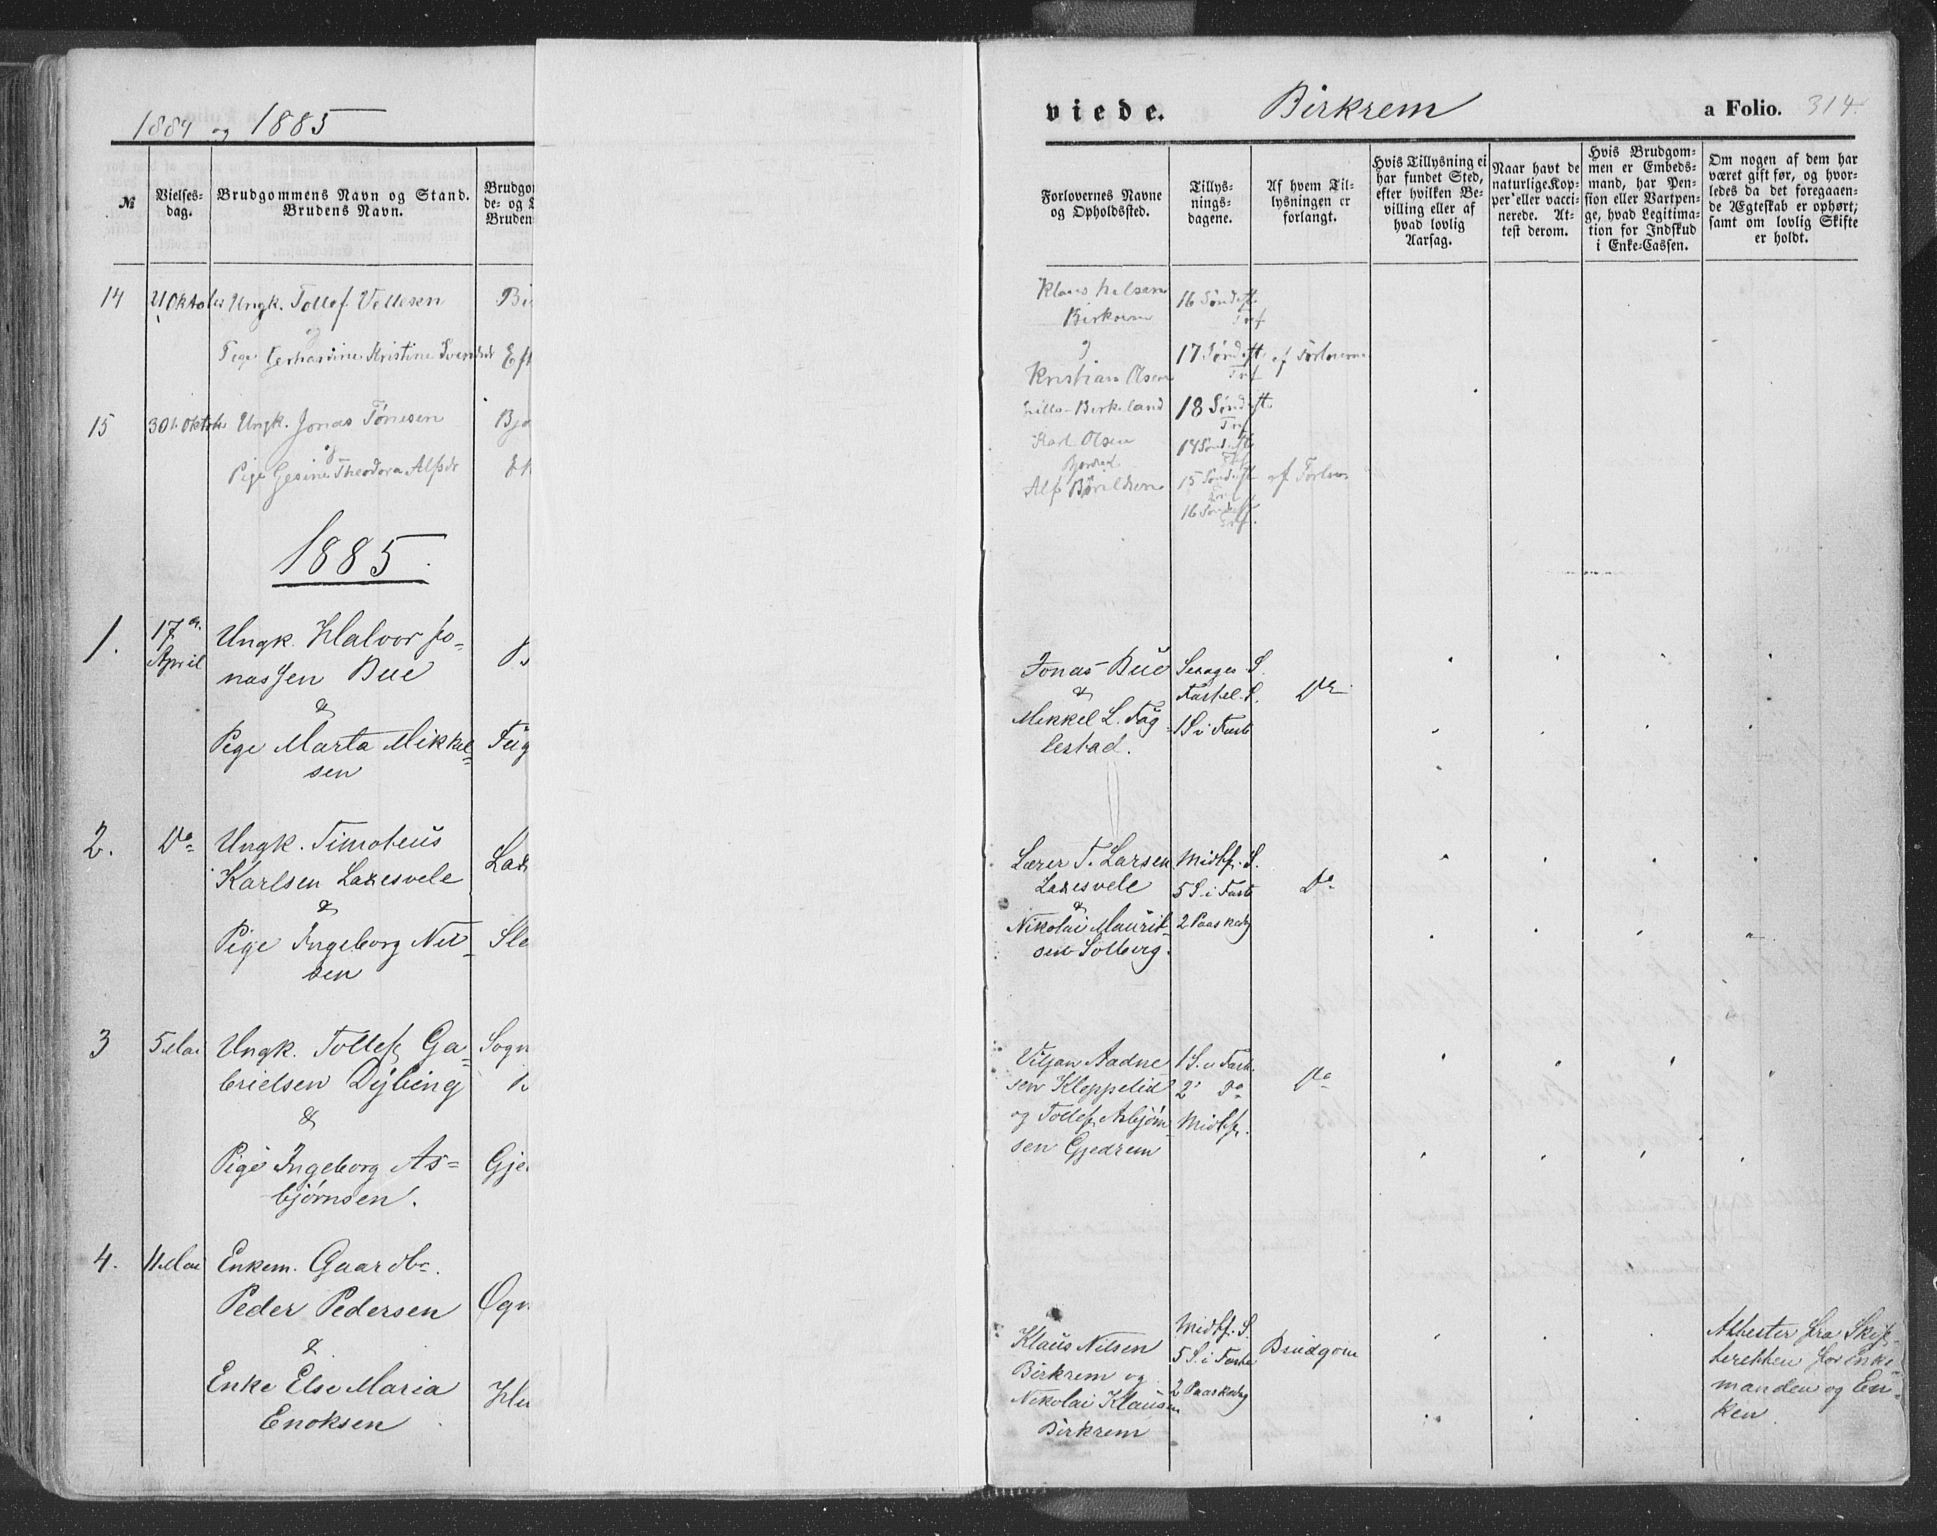 1884 og 1885
№
Vielses-
dag.
Brudgommens Navn og Stand.
Brudens Navn.
Brudgo
de- og
Bruden
14
21 Oktober
Ungk. Tollef Vellesen
og
Pige Gerhardine Kristine
15
30t Oktobr
Ungk. Jonas Tønesen
og
Pige Gesine Theodora Alfsdr
1885.
1.
17de
April
Ungk. Halvor Jo=
nassen Bue
&
Pige Marta Mikkel=
sen
2.
Do
Ungk. Timoteus
Karlsen Laxesvele
&
Pige Ingeborg Nil=
sen
3
5 Mai
Ungk. Tollef Ga=
brielsen Dybing
&
Pige Ingeborg As=
bjørnsen.
4.
11 Mai
Enkem. Gaardbr.
Peder Pedersen
&
Enke Else Maria
Enoksen
Bi
Bj
Lax
Sle
Sogn
Gje
Ogn
viede.
Birkrem
a Folio. 314
Forlovernes Navne
og Opholdssted.
Tillys-
nings-
dagene.
Af hvem Til-
lysningen er
forlangt.
Hvis Tillysning ei
har fundet Sted,
efter hvilken Be-
villing eller af
hvad lovlig
Aarsag.
Naar havt de
naturlige Kop-
per eller vacci-
nerede. At-
test derom.
Hvis Brudgom-
men er Embeds-
mand, har Pen-
sion eller Vartpen-
ge, hvad Legitima-
tion for Indskud
i Enke-Cassen.
Om nogen af dem har
været gift før, og hvor-
ledes da det foregaaen-
de Ægteskab er ophørt;
samt om lovlig Skifte
er holdt.
Klaus Nilsen
Birkrem
og
Kristian Olsen
Lille-Birkeland
16 Sønd eft
Tref
17 Sønd eft
Tref
18 Sønd eft
Tref
af Forloverne
Karl Olsen
Bjordal
Alf
14 Sønd eft
Tref
15 Sønd eft
Tref
16 Sønd eft
Tref.
af Forlover
Jonas Bue
&
Mikkel L. Fug=
lestad.
Sexages. S.
Fastel. S.
1 S. i Faste
Do
Lærer T. Larsen
Laxesvele
&
Nikolai Maurit=
sen Solberg.
Midtf. S.
5 S. i Faste
2 Paaskedg
Do
Viljan Aadne=
sen Kloppelid
og Tollef Asbjørn=
sen Gjedrem
1 S. i Faste
2' Do
Midtf.
Do
Klaus Nilsen
Birkrem og
Nikolai Klausen
Birkrem
Midtf. S.
5 S. i Faste
2 Paaskedag
Brudgom
Attester fra Skif=
teretten for Enke=
manden og En=
ken.